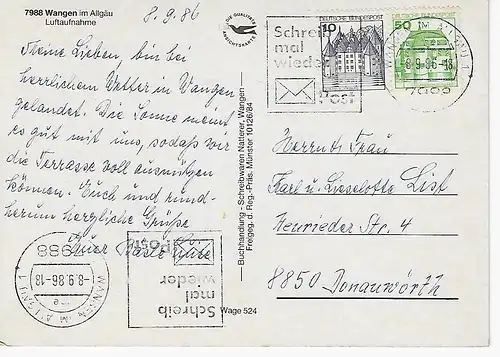 7988 Wangen im Allgäu
Luftaufnahme
8.9.86
DIE QUALITÄTS
ANSICHTSKARTE
Meine Lieben, bin bei
herrlichem Wetter in Wangen
gelandet. Die Sonne meint
es gut mit uns, sodaß wir
die Terrasse voll ausnützen
können. Euch und rund-
herum herzliche Grüße
Euer
Buchhandlung – Schreibwaren Natterer, Wangen
Freigeg. d. Reg.-Präs. Münster 10126/84
Wage 524
Schreib
mal
wieder
Post
DEUTSCHE BUNDESPOST
10
50
WANGEN IM ALLGÄU 1
-8.9.86-18
7988
Herrn u. Frau
Karl u. Lieselotte List
Neurieder Str. 4
8850 Donauwörth
Schreib
mal
wieder
Post
WANGEN IM ALLGÄU 1
-8.9.86-18
7988